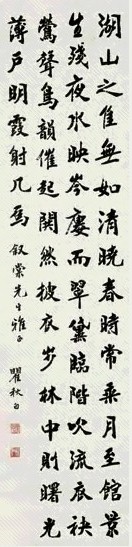 湖山之佳無如清曉春時常乘月至館景
生殘夜水映岑樓而翠黛臨階吹流衣袂
鶯聲鳥韻催起閧然披衣步林中則曙光
薄戶明霞射几焉 叙棠先生雅正 瞿秋白